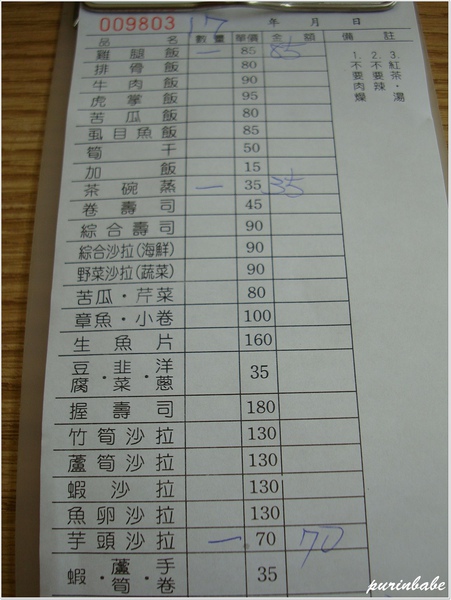 009803 17 年 月 日
品名 數量 單價 金額 備註
雞腿飯 一 85 85
排骨飯 80
牛肉飯 90
虎掌飯 95
苦瓜飯 80
虱目魚飯 85
筍干 50
加飯 15
茶碗蒸 一 35 35
卷壽司 45
綜合壽司 90
綜合沙拉(海鮮) 90
野菜沙拉(蔬菜) 90
苦瓜・芹菜 80
章魚・小卷 100
生魚片 160
豆腐・韭菜・洋蔥 35
握壽司 180
竹筍沙拉 130
蘆筍沙拉 130
蝦沙拉 130
魚卵沙拉 130
芋頭沙拉 一 70 70
蝦・蘆筍・手卷 35
3.紅茶・湯
2.不要辣
1.不要肉燥
purinbabe